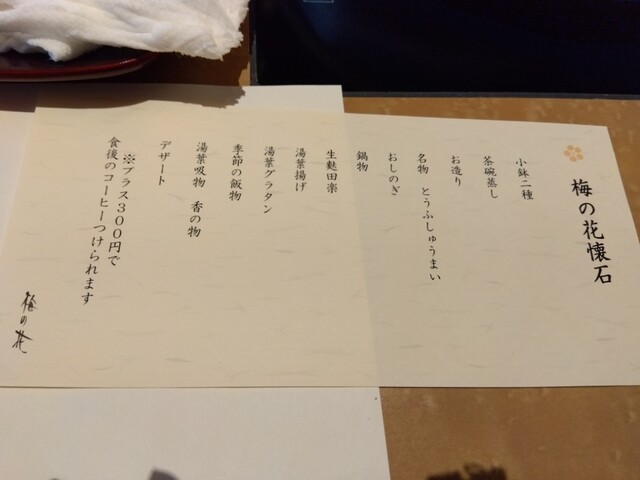 梅の花懐石
小鉢二種
茶碗蒸し
お造り
名物 とうふしゅうまい
おしのぎ
鍋物
生麩田楽
湯葉揚げ
湯葉グラタン
季節の飯物
湯葉吸物 香の物
デザート
※プラス300円で
食後のコーヒーつけられます
梅の花